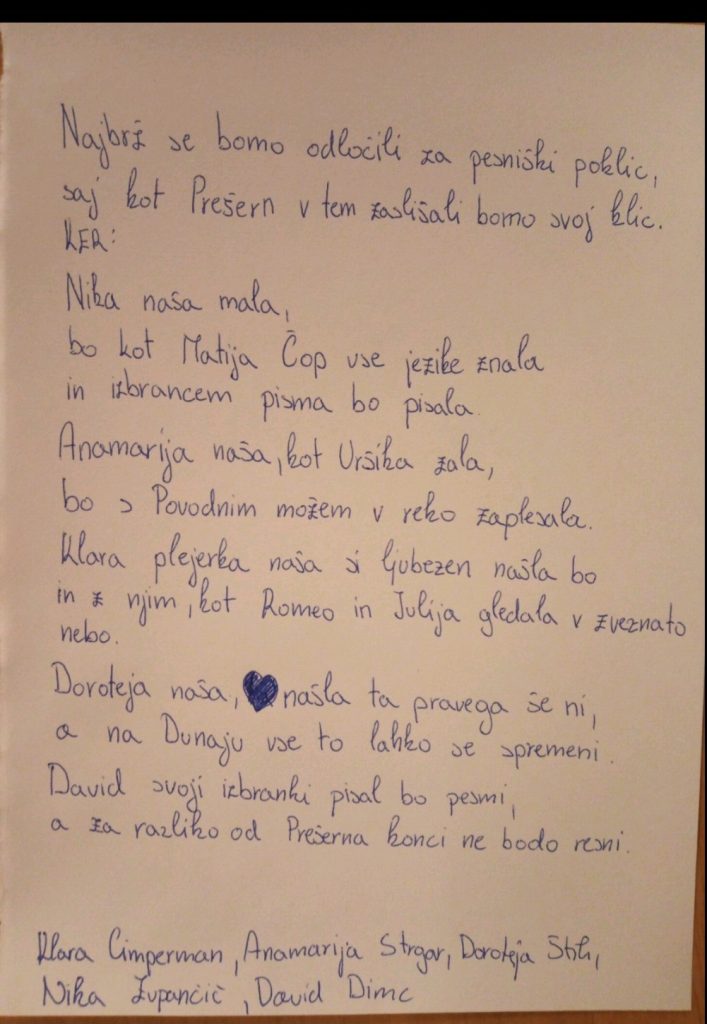 Najbrž se bomo odločili za pesniški poklic,
saj kot Prešern v tem zaslišali bomo svoj klic.
KER:
Nika naša mala,
bo kot Matija Čop vse jezike znala
in izbrancem pisma bo pisala.
Anamarija naša, kot Uršika zala,
bo s Povodnim možem v reko zaplesala.
Klara plejerka naša si ljubezen našla bo
in z njim, kot Romeo in Julija gledala v zveznato
nebo.
Doroteja naša, našla ta pravega še ni,
a na Dunaju vse to lahko se spremeni.
David svoji izbranki pisal bo pesmi,
a za razliko od Prešerna konci ne bodo resni.
Klara Cimperman, Anamarija Strgar, Doroteja
Nika Zupančič, David Dimc